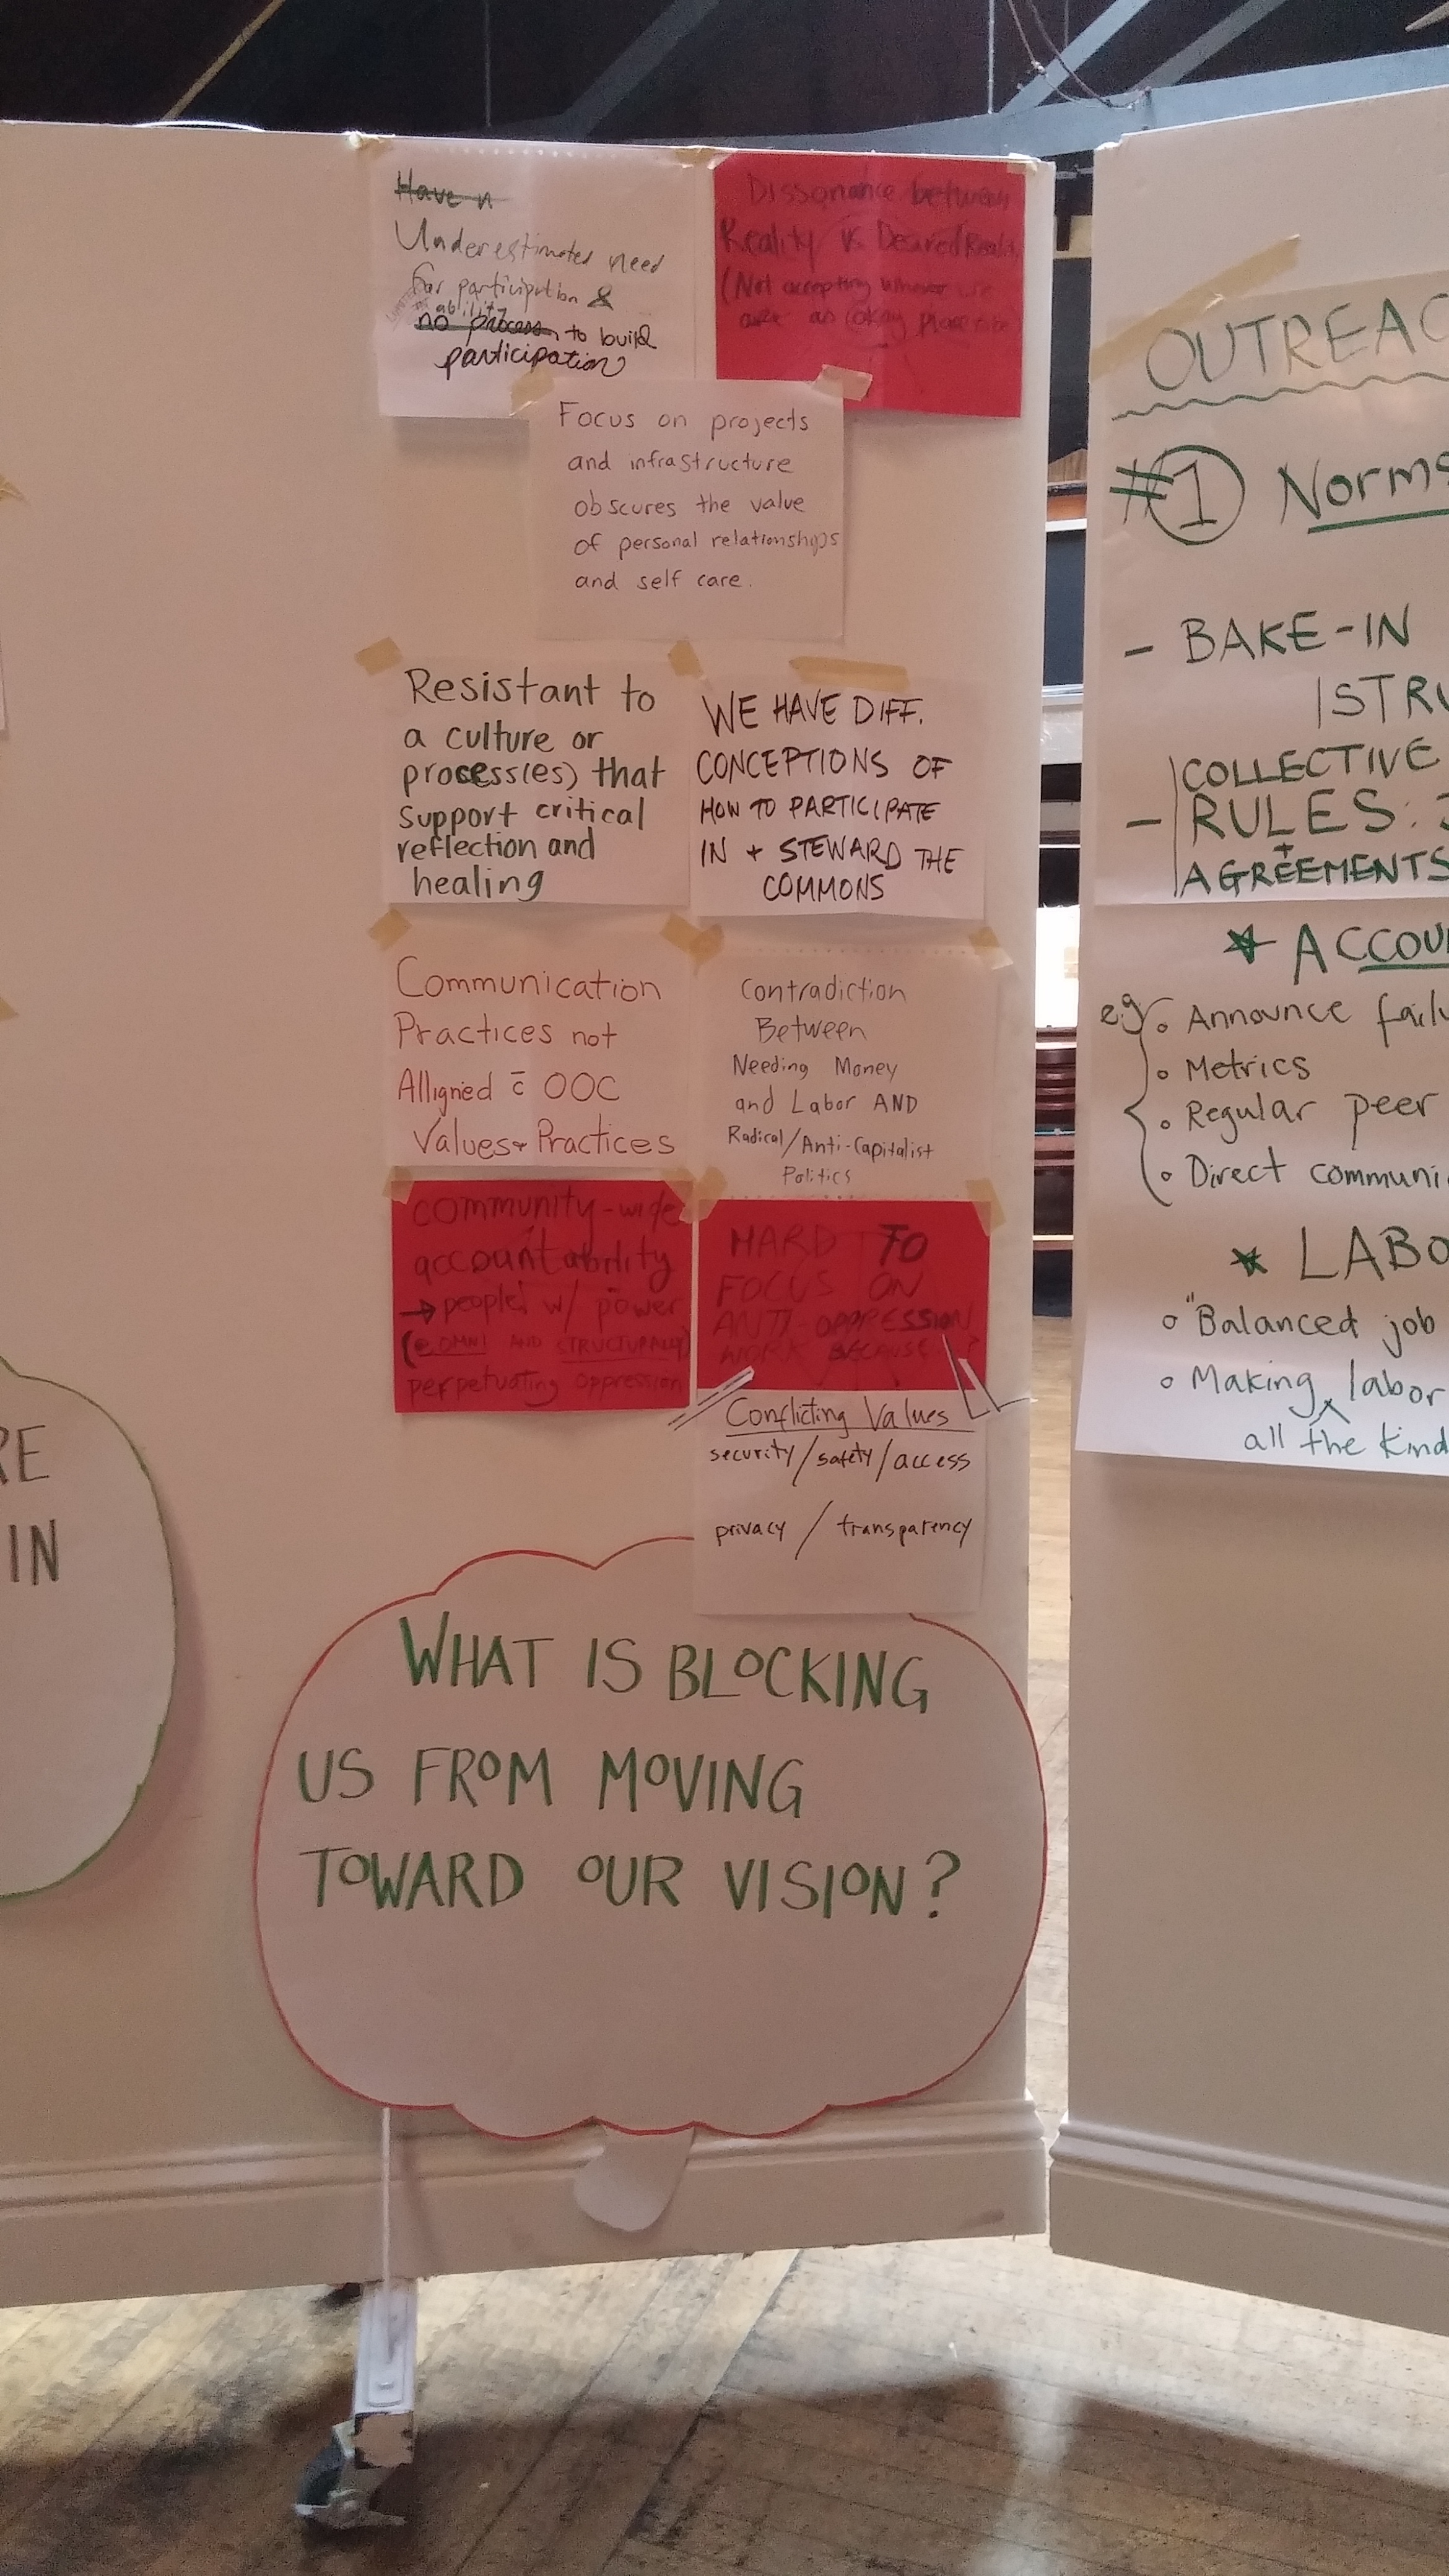 Have n
Underestimated need
for participation &
ability
no process to build
participation
Dissonance between
Reality vs Desired Reality
(Not accepting wherever we
are as okay place
Focus on projects
and infrastructure
obscures the value
of personal relationships
and self care.
Resistant to
a culture or
process(es) that
support critical
reflection and
healing
WE HAVE DIFF.
CONCEPTIONS OF
HOW TO PARTICIPATE
IN + STEWARD THE
COMMONS
Communication
Practices not
Alligned c̄ OOC
Values + Practices
Contradiction
Between
Needing Money
and Labor AND
Radical/Anti-Capitalist
Politics
Community-wide
accountability
→ people w/ power
(@ OMNI AND STRUCTURALLY)
perpetuating oppression
HARD TO
FOCUS ON
ANTI-OPPRESSION
WORK BECAUSE ?
Conflicting Values
security/safety/access
privacy / transparency
WHAT IS BLOCKING
US FROM MOVING
TOWARD OUR VISION?
RE
IN
OUTREAC
#1 Norms
- BAKE-IN
ISTRU
COLLECTIVE
- RULES:
+
AGREEMENTS
★ ACCOU
e.g. ∘ Announce failu
∘ Metrics
∘ Regular peer
∘ Direct communi
★ LABO
∘ "Balanced job
∘ Making labor
all the kind